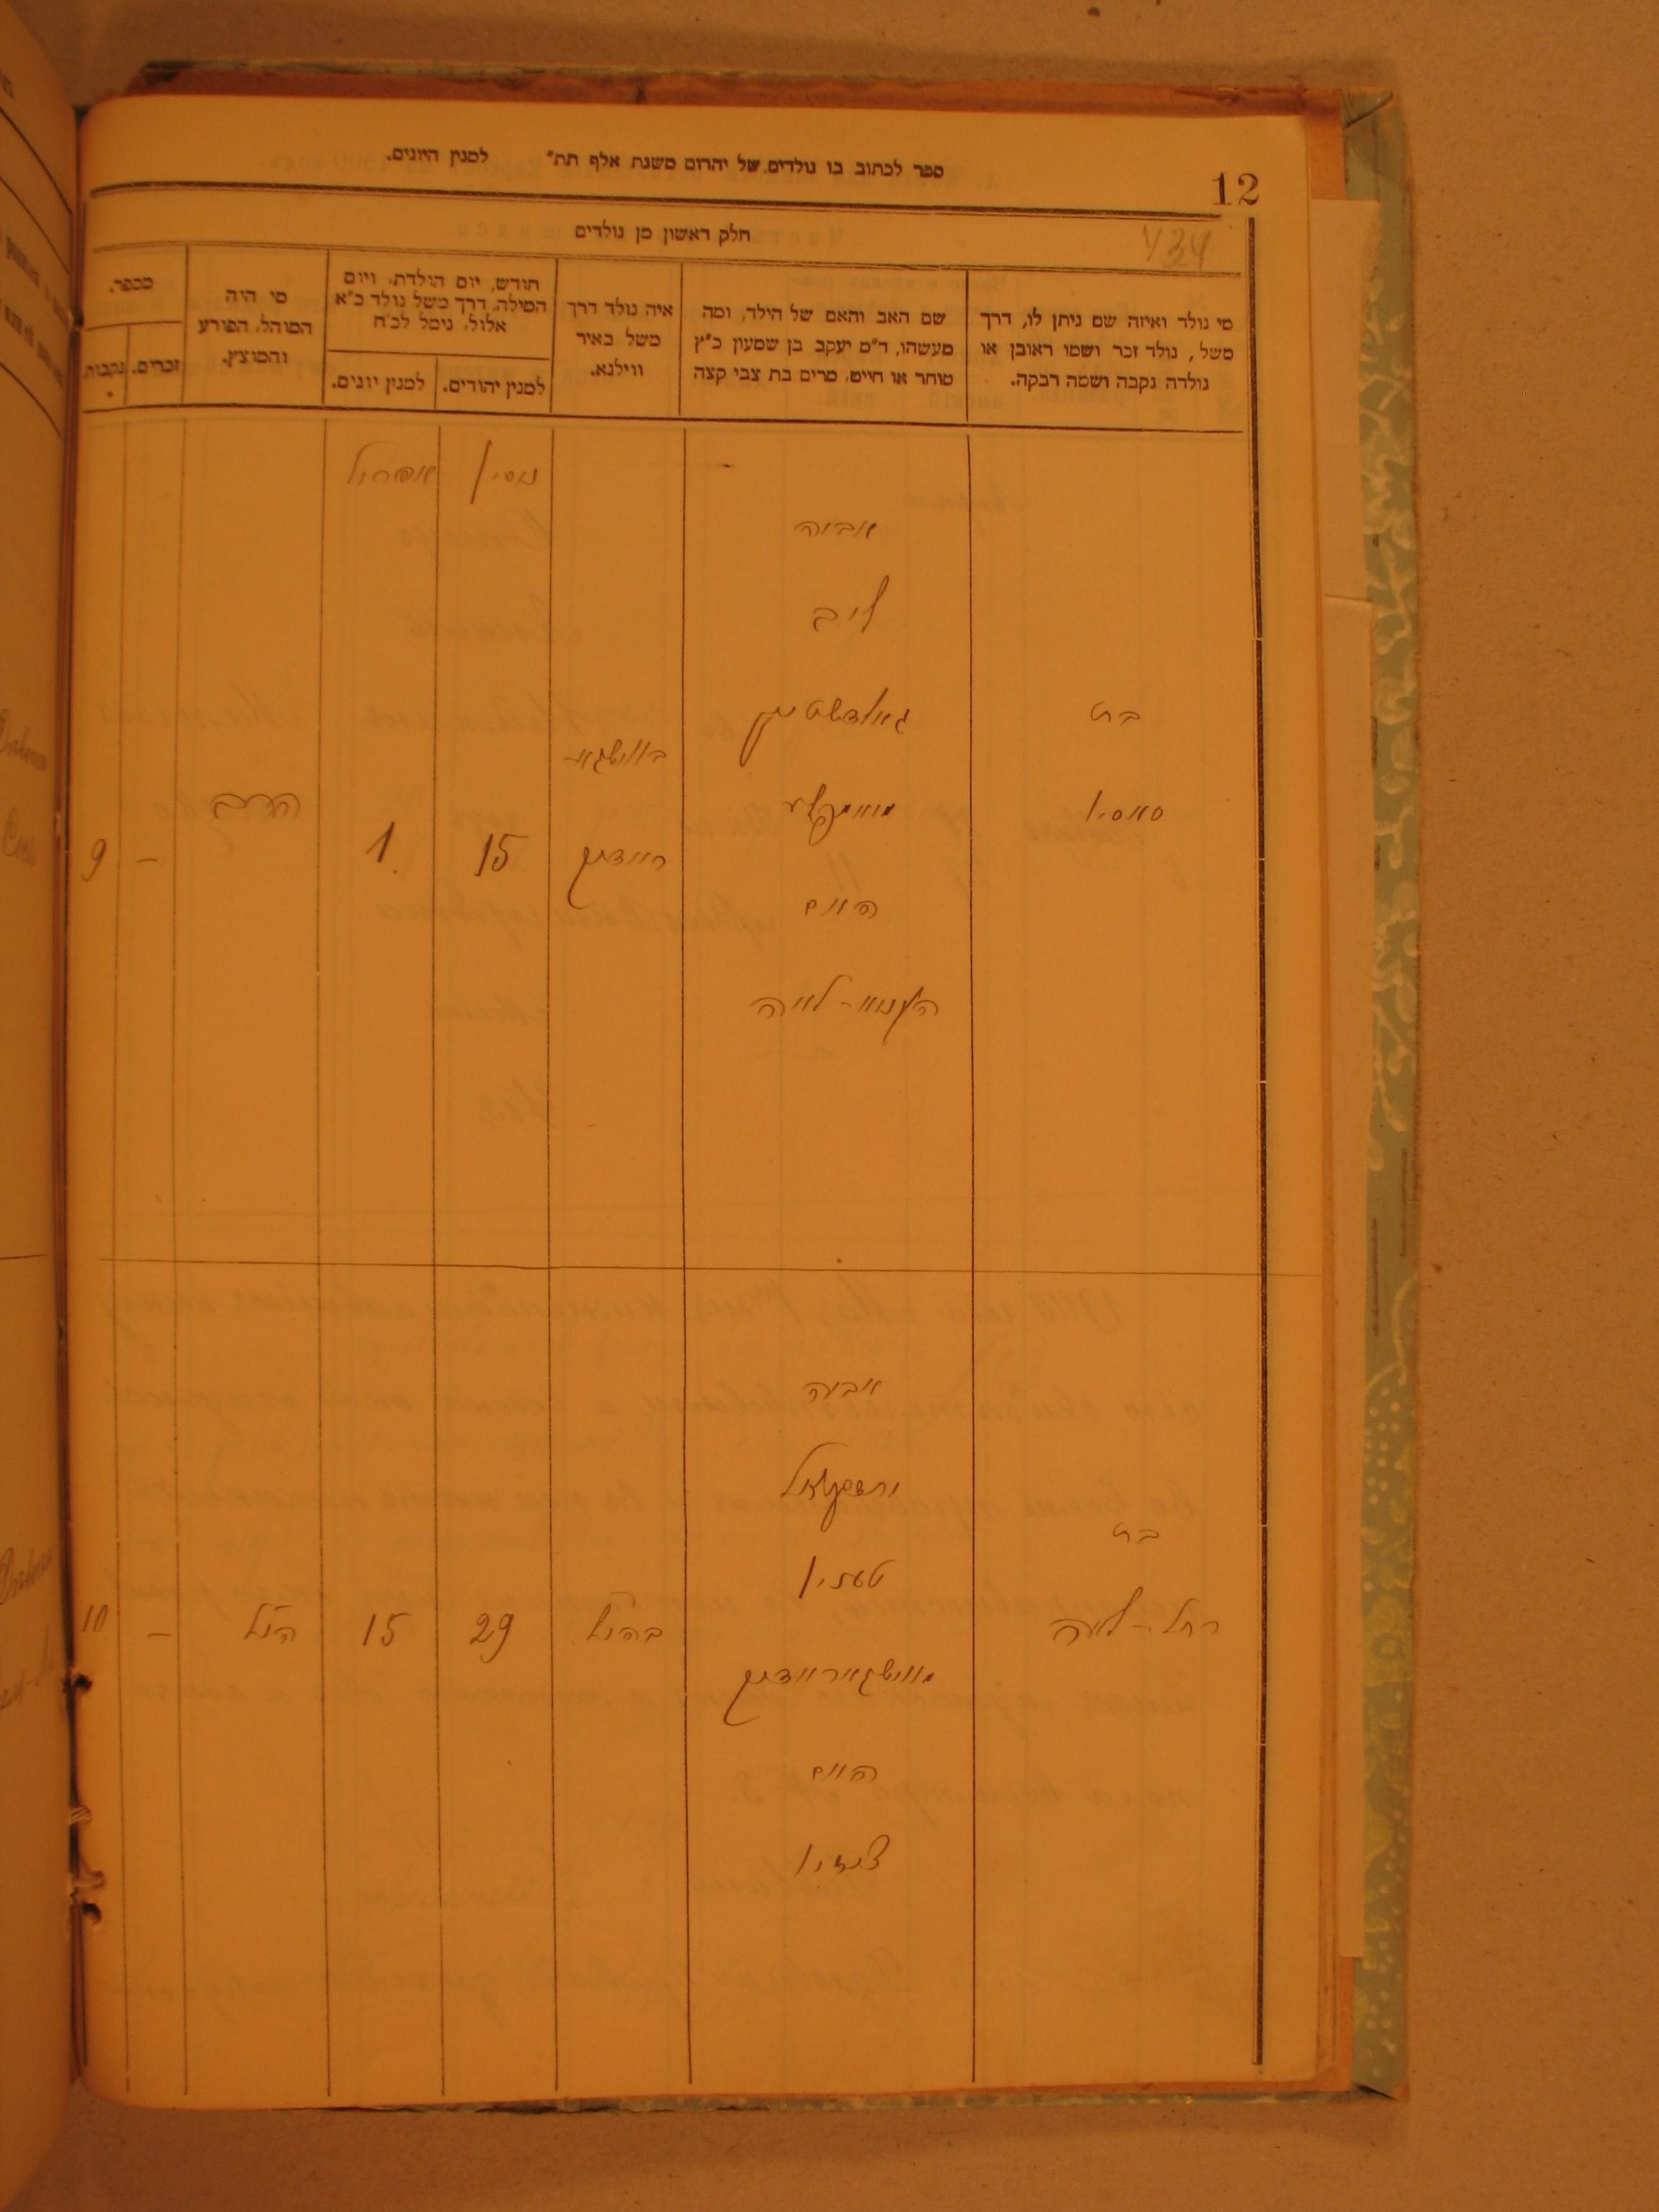 ספר לכתוב בו נולדים של יהרום משנת אלף תת" למנין היונים.
12
חלק ראשון מן נולדים
מי נולד ואיזה שם ניתן לו, דרך
משל, נולד זכר ושמו ראובן או
נולדה נקבה ושמה רבקה.
שם האב והאם של הילד, ומה
מעשהו, ד"מ יעקב בן שמעון כ"ץ
סוחר או חייט, מרים בת צבי קצה
איה נולד דרך
משל באיר
ווילנא.
חודש, יום הולדת, ויום
המילה, דרך משל נולד כ"א
אלול, נימל לכ"ח
למנין יהודים.
למנין יונים.
מי היה
המוהל, הפורע
והמוצץ.
מספר.
זכרים.
נקבות
ניסין
אפריל
אביה
ליב
גאלדשטיין
בת
סאסיא
האם
לאיה
הרב
15
1.
–
9
אביה
בת
רחל-לאה
האם
בהנ"ל
29
15
הנ"ל
–
10